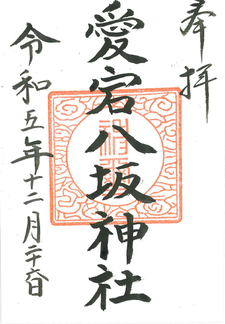 奉拝
愛宕八坂神社
令和五年十二月二十六日